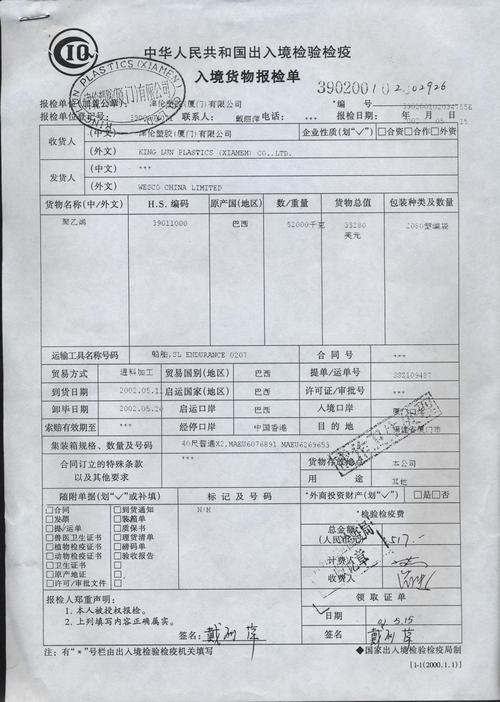 CIQ
中华人民共和国出入境检验检疫
入境货物报检单
390200102302926
PLASTICS (XIAMEN)
报检单位(加盖公章) 津伦塑胶(厦门)有限公司 *编号
报检单位登记号: 联系人: 戴丽萍 电话: *** 报检日期: 年 月 日
收货人 (中文) 津伦塑胶(厦门)有限公司 企业性质(划"✓") □合资□合作□外资
(外文) KING LUN PLASTICS (XIAMEM) CO.,LTD.
发货人 (中文) ***
(外文) WESCO CHINA LIMITED
货物名称(中/外文) H.S.编码 原产国(地区) 数/重量 货物总值 包装种类及数量
聚乙烯 39011000 巴西 52000千克 33280 2080塑编袋
美元
运输工具名称号码 船舶,SL ENDURANCE 0207 合同号 ***
贸易方式 进料加工 贸易国别(地区) 巴西 提单/运单号
到货日期 2002.05.1 启运国家(地区) 巴西 许可证/审批号 ***
卸毕日期 2002.05.20 启运口岸 巴西 入境口岸
索赔有效期至 *** 经停口岸 中国香港 目的地 福建省厦门市
集装箱规格、数量及号码 40尺普通X2,MAEU6076891 MAEU6269653
合同订立的特殊条款
以及其他要求
货物存放地点 本公司
用途 其他
随附单据(划"✓"或补填) 标记及号码 *外商投资财产(划"✓") □是□否
□合同 □到货通知 N/M *检验检疫费
□发票 □装箱单
□提/运单 □质保书
□兽医卫生证书 □理货清单
□植物检疫证书 □磅码单
□动物检疫证书 □验收报告
□卫生证书
□原产地证
□许可/审批文件
总金额
(人民币元) 517.-
计费人
收费人
报检人郑重声明:
1.本人被授权报检。
2.上列填写内容正确属实。
签名: 戴丽萍
领取证单
日期 5.15
签名 戴丽萍
注:有"*"号栏由出入境检验检疫机关填写 ◆国家出入境检验检疫局制
[1-1(2000.1.1)]